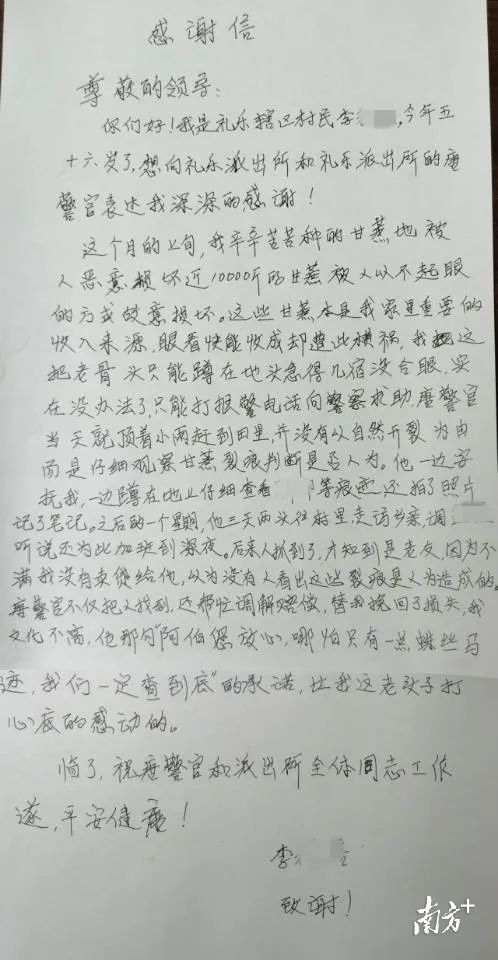 感谢信
尊敬的领导:
你们好!我是礼乐辖区村民李,今年五
十六岁了,想向礼乐派出所和礼乐派出所的唐
警官表达我深深的感谢!
这个月的上旬,我辛辛苦苦种的甘蔗地被
人恶意损坏近10000斤的甘蔗被人以不起眼
的方式故意损坏。这些甘蔗本是我家里重要的
收入来源,眼看快能收成却遭此横祸,我这
把老骨头只能蹲在地头急得几宿没合眼,实
在没办法了,只能打报警电话向警察求助,唐警官
当天就顶着小雨赶到田里,并没有以自然开裂为由
而是仔细观察甘蔗裂痕判断是否人为。他一边安
抚我,一边蹲在地上仔细查看等痕迹还拍了照片
记了笔记。之后的一个星期,他三天两头往村里走访乡亲,调
听说还为此加班到深夜。后来人抓到了,才知到是老友,因为不
满我没有卖货给他,以为没有人看出这些裂痕是人为造成的。
唐警官不仅把人找到,还帮忙调解赔偿,替我挽回了损失,我
文化不高,他那句“阿伯您放心,哪怕只有一点蛛丝马
迹,我们一定查到底”的承诺,让我这老头子打
心底的感动的。
临了,祝唐警官和派出所全体同志工作
遂,平安健康!
李
致谢!
南方+